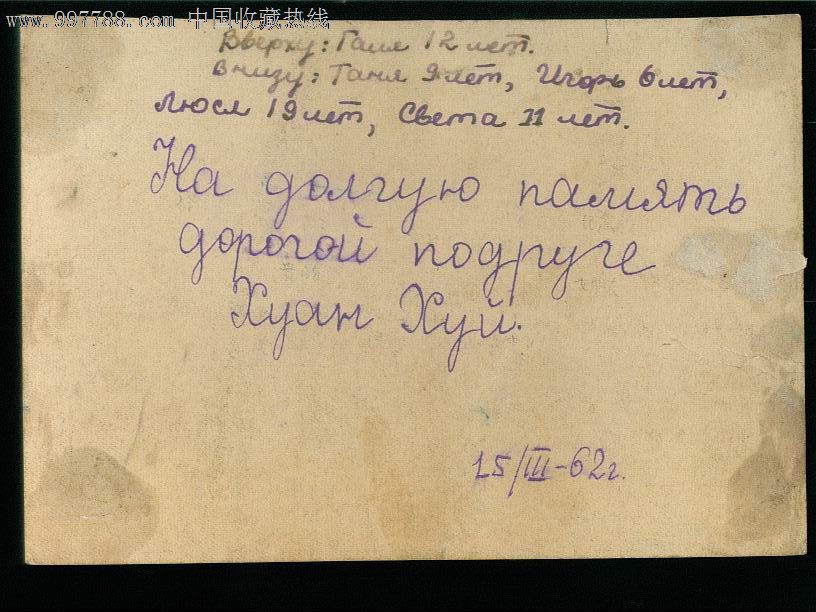 www.997788.com 中国收藏热线
Вверху: Галя 12 лет.
внизу: Таня 9 лет, Игорь 6 лет,
Люся 19 лет, Света 11 лет.
На долгую память
дорогой подруге
Хуан Хуй.
15/III-62г.